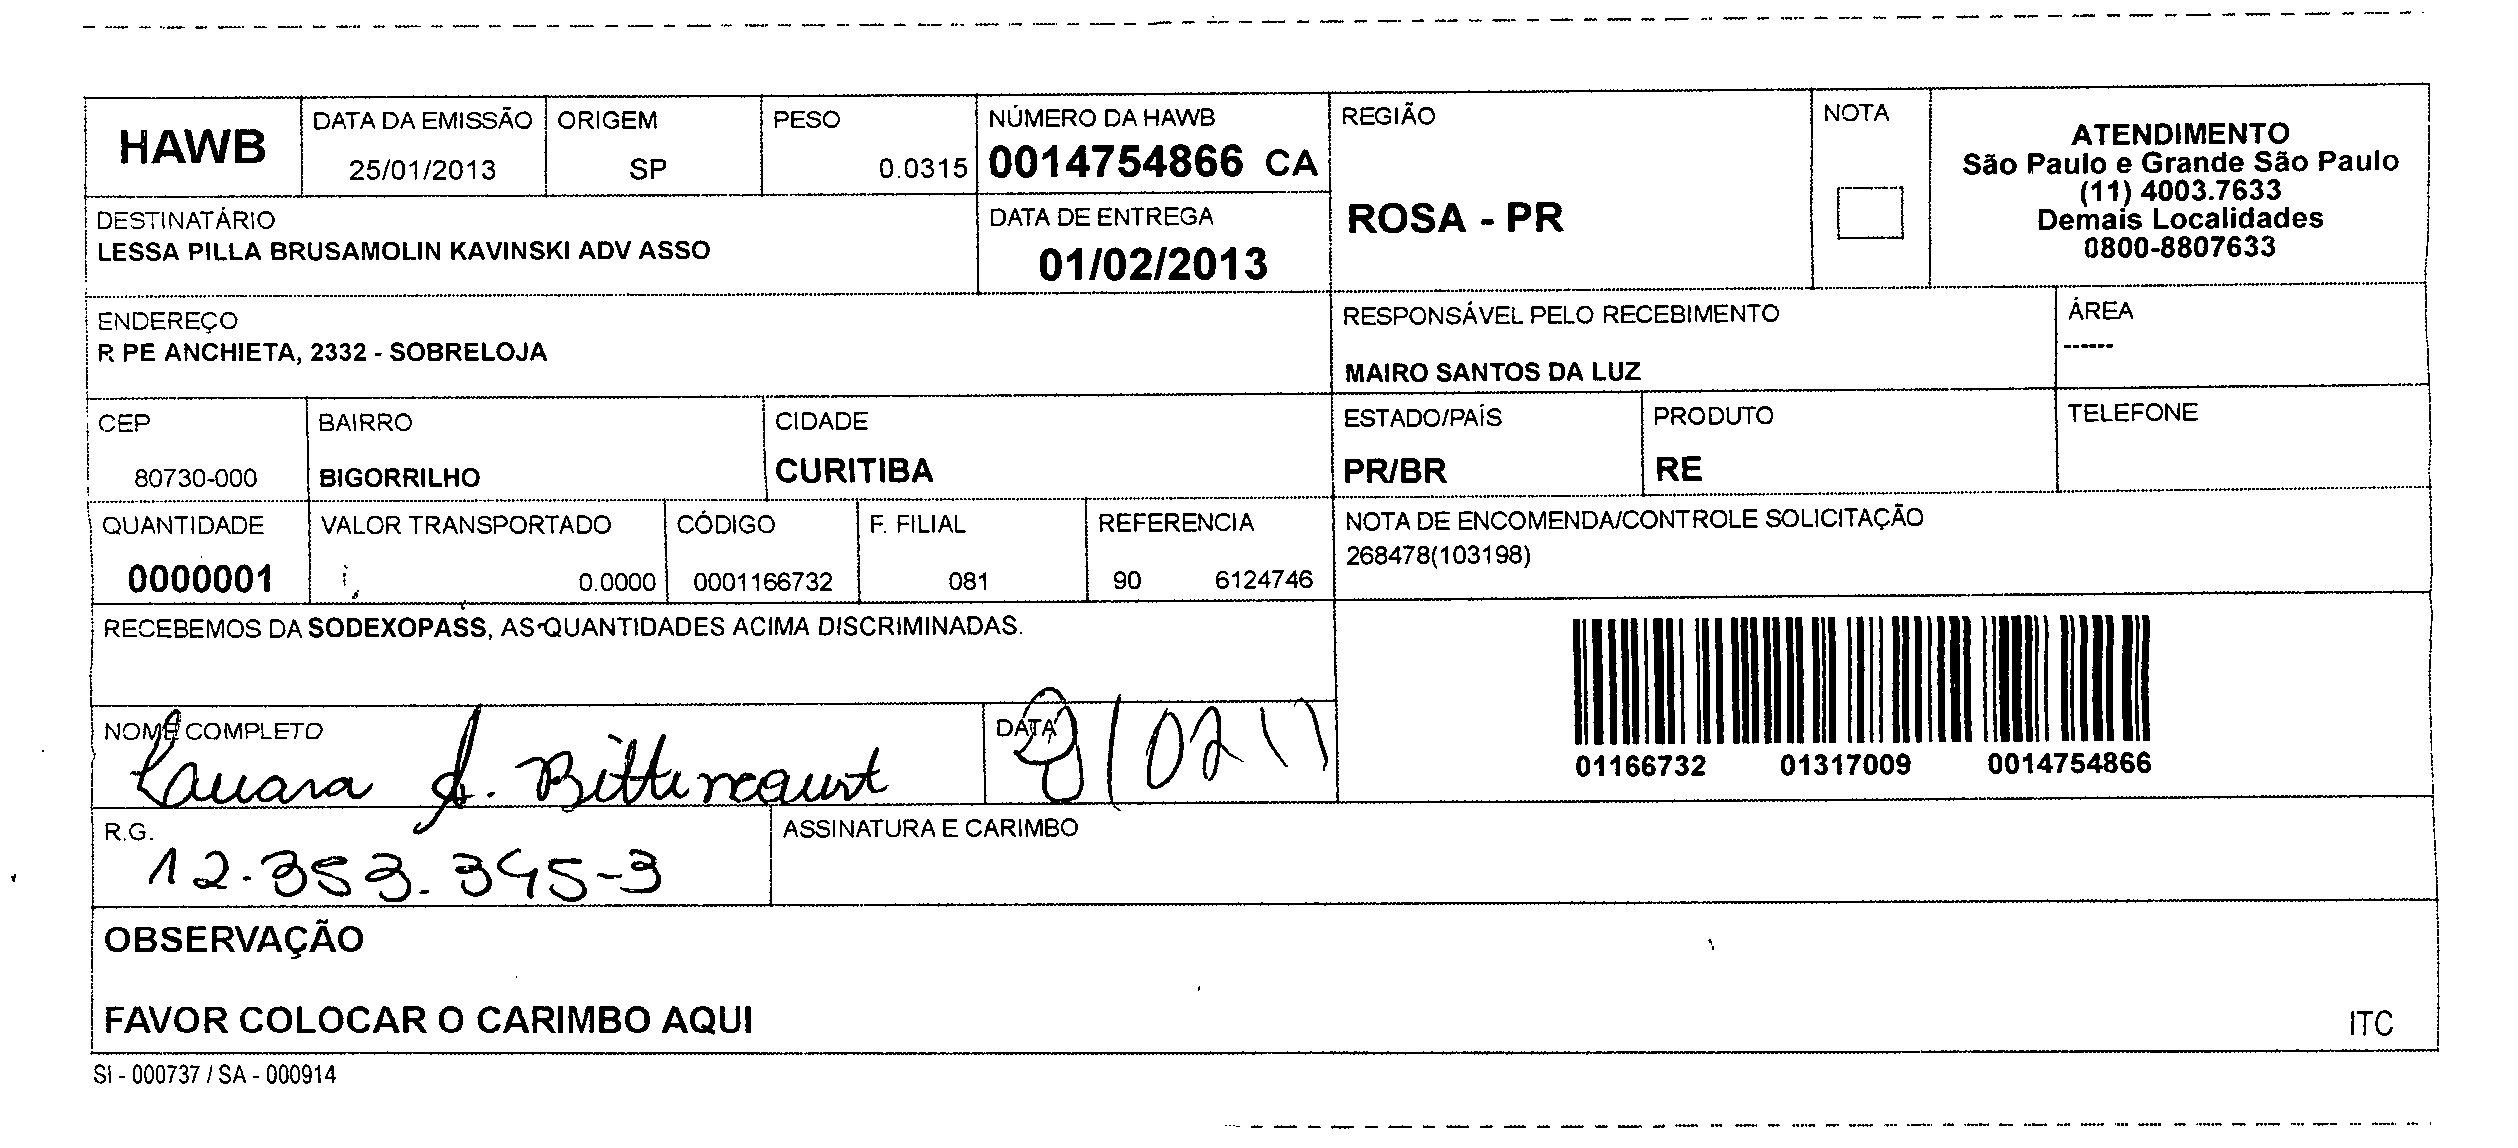 HAWB
DATA DA EMISSÃO
25/01/2013
ORIGEM
SP
PESO
0.0315
NÚMERO DA HAWB
0014754866 CA
REGIÃO
ROSA - PR
NOTA
ATENDIMENTO
São Paulo e Grande São Paulo
(11) 4003.7633
Demais Localidades
0800-8807633
DESTINATÁRIO
LESSA PILLA BRUSAMOLIN KAVINSKI ADV ASSO
DATA DE ENTREGA
01/02/2013
ENDEREÇO
R PE ANCHIETA, 2332 - SOBRELOJA
RESPONSÁVEL PELO RECEBIMENTO
MAIRO SANTOS DA LUZ
ÁREA
------
CEP
80730-000
BAIRRO
BIGORRILHO
CIDADE
CURITIBA
ESTADO/PAÍS
PR/BR
PRODUTO
RE
TELEFONE
QUANTIDADE
0000001
VALOR TRANSPORTADO
0.0000
CÓDIGO
0001166732
F. FILIAL
081
REFERENCIA
90 6124746
NOTA DE ENCOMENDA/CONTROLE SOLICITAÇÃO
268478(103198)
RECEBEMOS DA SODEXOPASS, AS QUANTIDADES ACIMA DISCRIMINADAS.
01166732 01317009 0014754866
NOME COMPLETO
A. Bittencourt
DATA
R.G.
12.353.345-3
ASSINATURA E CARIMBO
OBSERVAÇÃO
FAVOR COLOCAR O CARIMBO AQUI
ITC
SI - 000737 / SA - 000914